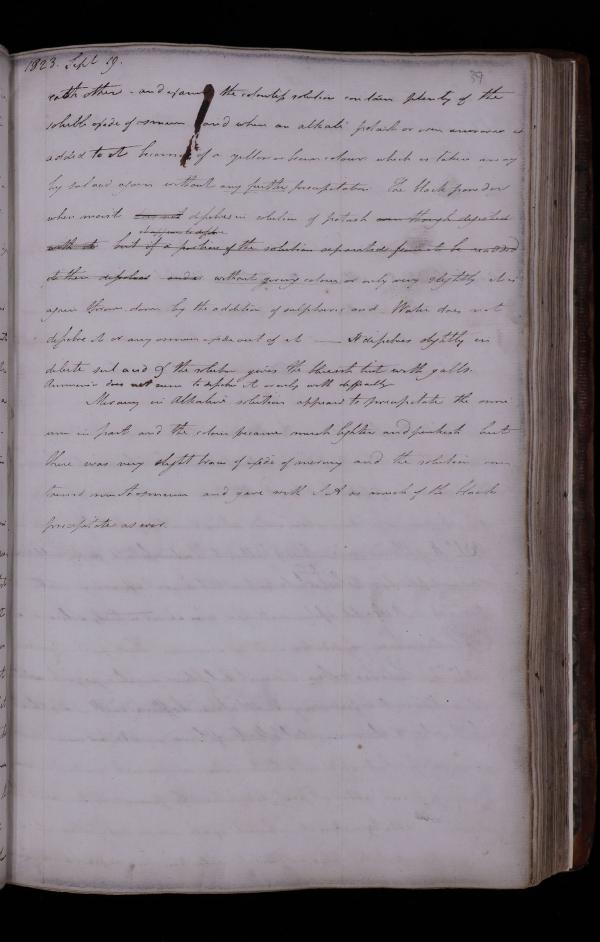 1823. Sept 19.
each other - and the colourless solution contain plenty of the
soluble oxide of osmium and when an alkali potash or even ammonia is
added to it becomes of a yellow or brown colour which is taken away
by sul acid again without any further precipitation The black powder
when moist does not dissolve in solution of potash even though digested
with it but if a portion of the solution separated from it be
it then dissolves and without giving colour or only very slightly it is
again thrown down by the addition of sulphuric acid Water does not
dissolve it or any osmium oxide out of it — It dissolves slightly in
dilute sul acid & the solution gives the blueish tint with galls.
Ammonia does not seem to dissolve it or only with difficulty
Mercury in Alkaline solutions appeared to precipitate the osmi
um in part and the colour became much lighter and pinkish but
there was very slight trace of oxide of mercury and the solution con
tained much osmium and gave with S A as much of the black
precipitate as ever